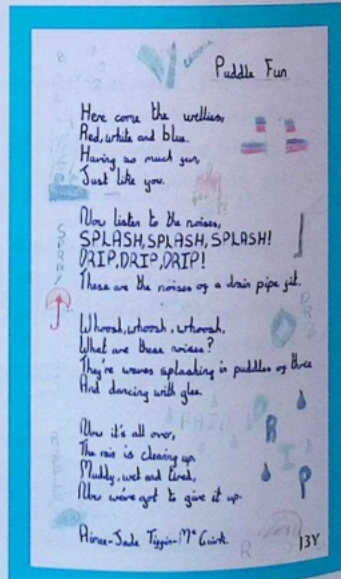 Puddle Fun
Here come the wellies,
Red, white and blue.
Having so much fun,
Just like you.
Now listen to the noises,
SPLASH, SPLASH, SPLASH!
DRIP, DRIP, DRIP!
These are the noises of a drain pipe git.
Whoosh, whoosh, whoosh,
What are these noises?
They're waves splashing in puddles of three
And dancing with glee.
Now it's all over,
The rain is clearing up.
Muddy, wet and tired,
Now we've got to give it up.
SPRAY
RAIN
DRIP
R
I
P
R
Aimee-Jade Tiggin-McGuirk
13Y